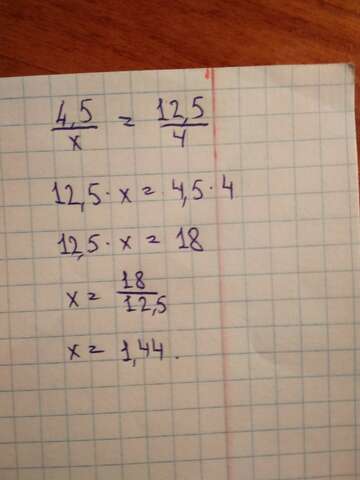 4,5/x = 12,5/4
12,5 · x = 4,5 · 4
12,5 · x = 18
x = 18/12,5
x = 1,44.